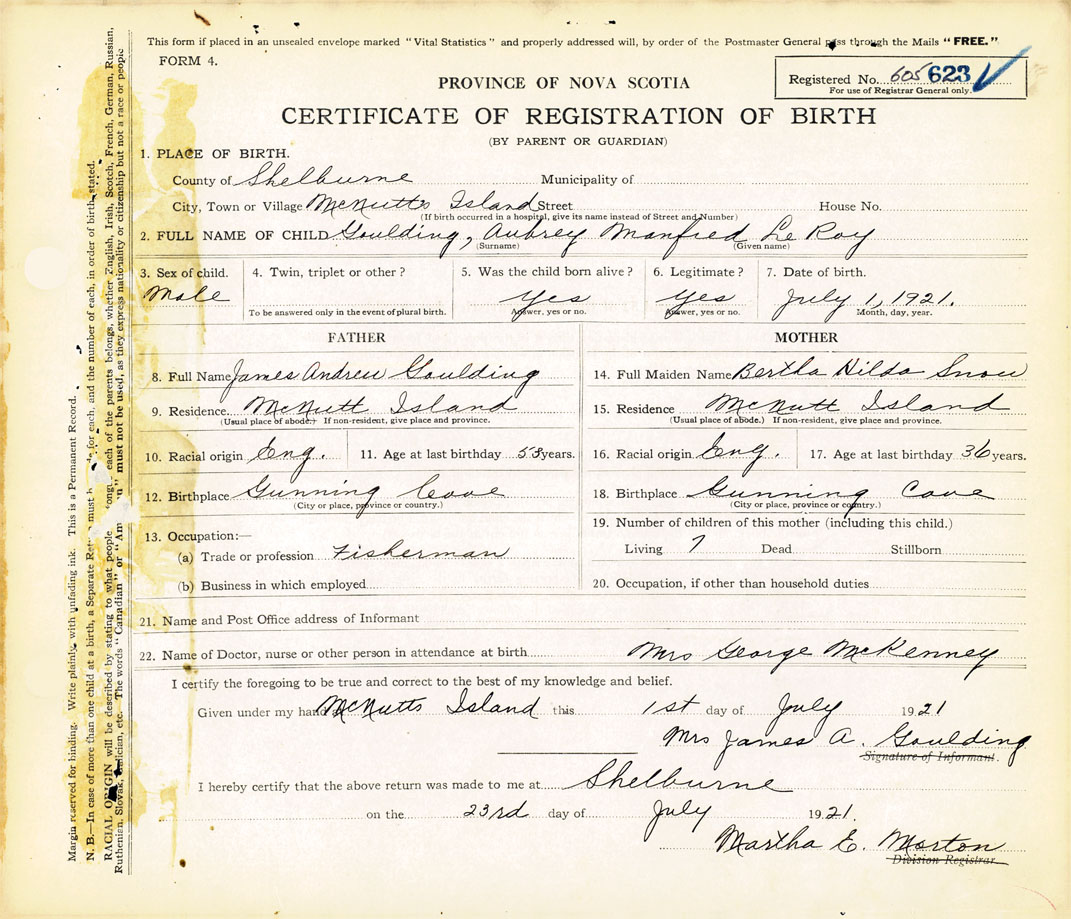 This form if placed in an unsealed envelope marked "Vital Statistics" and properly addressed will, by order of the Postmaster General pass through the Mails "FREE."
FORM 4.
Registered No. 605 623
For use of Registrar General only.
PROVINCE OF NOVA SCOTIA
CERTIFICATE OF REGISTRATION OF BIRTH
(BY PARENT OR GUARDIAN)
1. PLACE OF BIRTH.
County of Shelburne Municipality of
City, Town or Village McNutts Island Street House No.
(If birth occurred in a hospital, give its name instead of Street and Number)
2. FULL NAME OF CHILD Goulding, Aubrey Manfred Le Roy
(Surname) (Given name)
3. Sex of child. 4. Twin, triplet or other? 5. Was the child born alive? 6. Legitimate? 7. Date of birth.
Male Yes Yes July 1, 1921.
To be answered only in the event of plural birth. Answer, yes or no. Answer, yes or no. Month, day, year.
FATHER MOTHER
8. Full Name James Andrew Goulding 14. Full Maiden Name Bertha Hilda Snow
9. Residence McNutt Island 15. Residence McNutt Island
(Usual place of abode.) If non-resident, give place and province. (Usual place of abode.) If non-resident, give place and province.
10. Racial origin Eng. 11. Age at last birthday 53 years. 16. Racial origin Eng. 17. Age at last birthday 36 years.
12. Birthplace Gunning Cove 18. Birthplace Gunning Cove
(City or place, province or country.) (City or place, province or country.)
13. Occupation:— 19. Number of children of this mother (including this child.)
(a) Trade or profession Fisherman Living 7 Dead Stillborn
(b) Business in which employed 20. Occupation, if other than household duties
21. Name and Post Office address of Informant
22. Name of Doctor, nurse or other person in attendance at birth Mrs George McKenney
I certify the foregoing to be true and correct to the best of my knowledge and belief.
Given under my hand at McNutts Island this 1st day of July 1921
Mrs James A. Goulding
Signature of Informant.
I hereby certify that the above return was made to me at Shelburne
on the 23rd day of July 1921.
Martha E. Morton
Division Registrar
Margin reserved for binding. Write plainly with unfading ink. This is a Permanent Record.
N. B.—In case of more than one child at a birth, a Separate Return must be made for each, and the number of each, in order of birth, stated.
RACIAL ORIGIN will be described by stating to what people each of the parents belongs, whether English, Irish, Scotch, French, German, Russian,
Ruthenian, Slovak, Galician, etc. The words "Canadian" or "American" must not be used, as they express nationality or citizenship but not a race or people